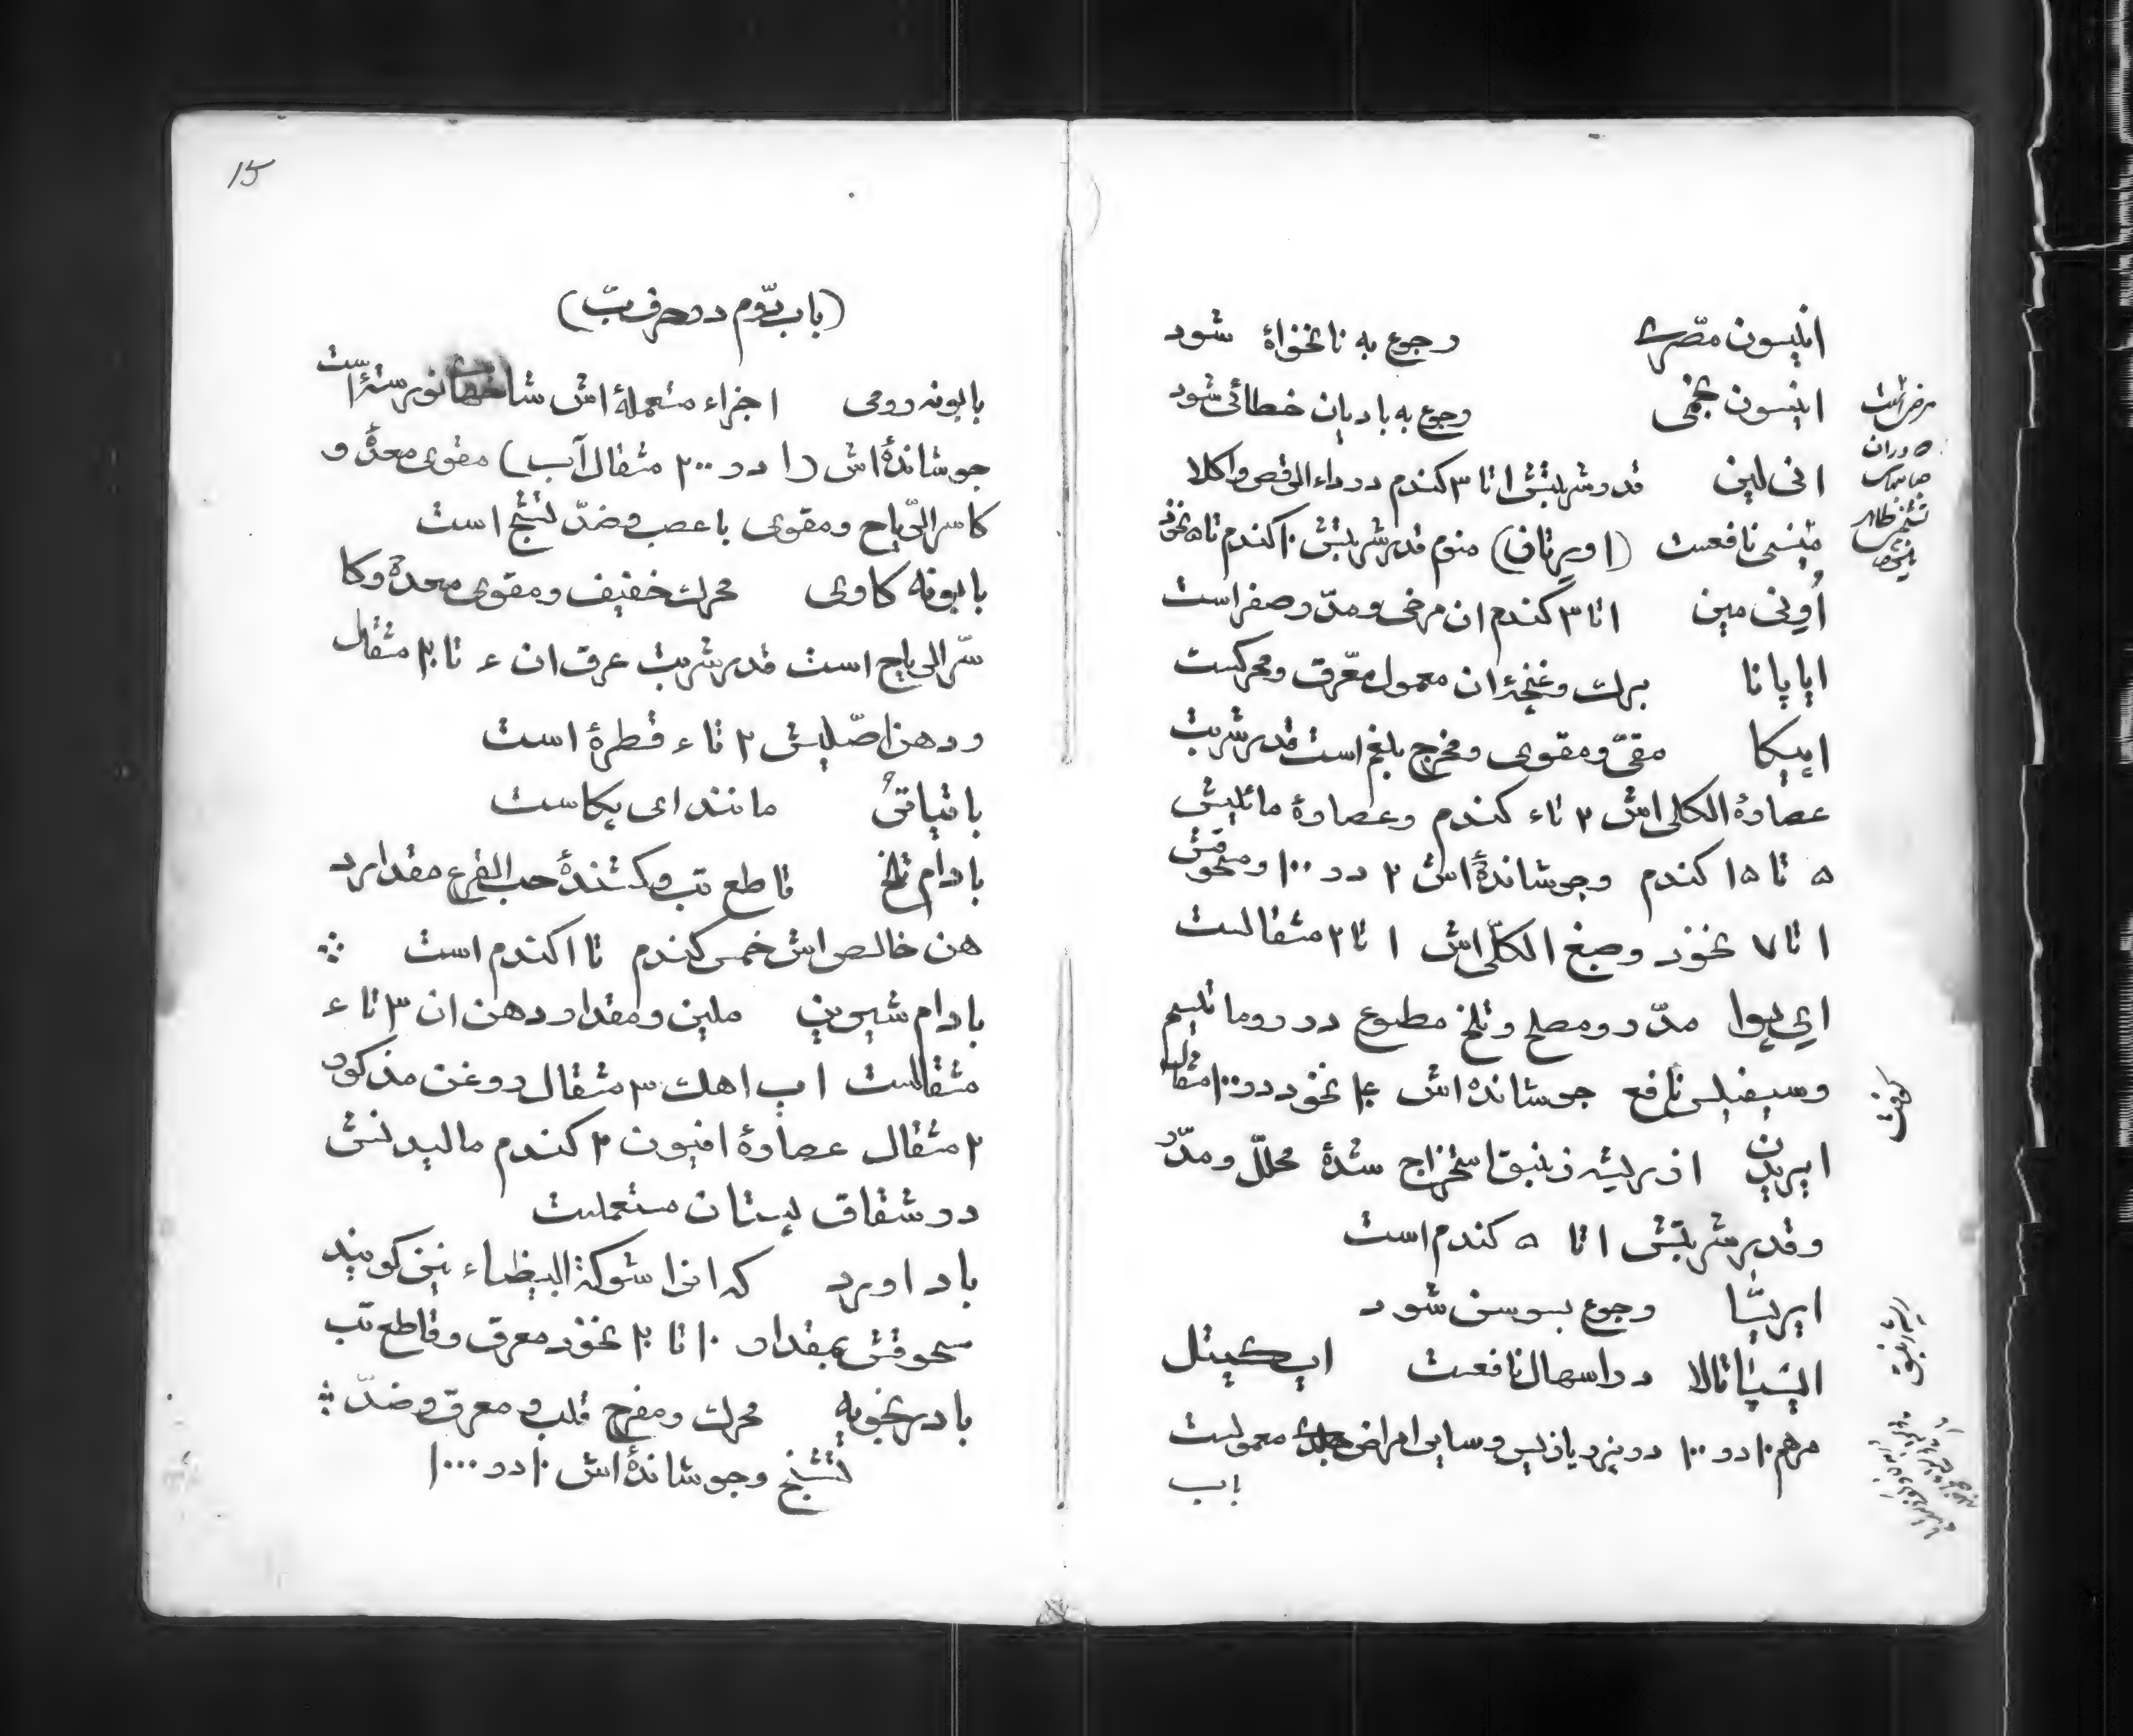 انیسون مصّری رجوع به نانخواهٔ شود
انیسون نجمی رجوع به بادیان خطائی شود
انی لین قدر شربتش ۱ تا ۳ کندم در داء الرقص و اکلا
مپنسی نافعست (اورتان) منوم قدر شربتش ۱۰ کندم تا ۵ نخود
اُونی مین ۱ تا ۳ کندم ان مرخی و مدّر صفر است
اپاپانا برك و غنچهٔ ان معمول معّرق و محرکست
اپیکا مقیّ و مقوی و مخرج بلغم است قدر شربت
عصارهٔ الکلی اش ۲ تا ۴ کندم و عصارهٔ مائیش
۵ تا ۱۵ کندم و جوشاندهٔ اش ۲ در ۱۰۰ و سحوقش
۱ تا ۷ نخود و صبغ الکلّی اش ۱ تا ۲ مثقالست
ای پوا مدّر و مصلح و تلخ مطبوع در روماتیسم
و سیفیلس نافع جوشانده اش نخود در ۱۰۰ مثقال
ایریدن از ریشه زنبق استخراج شدهٔ محلّل و مدّر
و قدر شربتش ۱ تا ۵ کندم است
ایریسّا رجوع بسوسن شود
ایسپاتالا در اسهال نافعست اپکیتل
مرهم ۱۰ در ۱۰۰ در پزویازیس و سایر امراض جلدی معمولست
باب
15
(باب دّوم در حرف بّ)
بابونه رومی اجزاء مستعملهٔ اش نورسته است
جوشاندهٔ اش (۱ در ۲۰۰ مثقال آب) مقوی معدهٔ و
کاسر الرّیاح و مقوی باعصب و ضدّ تشنج است
بابونه کاوی محرك خفیف و مقوی معدهٔ و کا
سّر الریاح است قدر شربت عرق ان ۴ تا ۲۰ مثقال
و دهن اصّلیش ۲ تا ۴ قطرهٔ است
باتیاتیُ مانند ای پکاست
بادام تلخ قاطع تب و کشندهٔ حب القرع مقدار د
هن خالص اش خمس کندم تا ۱ کندم است
بادام شیرین ملین و مقدار دهن ان ۳ تا ۴
مثقالست اب اهك ۳ مثقال روغن مذکور
۲ مثقال عصارهٔ افیون ۲ کندم مالیدنش
در شقاق پستان مستعملست
باد اورد که انرا شوکة البیظاء نیز کویند
سحوقش بمقدار ۱۰ تا ۲۰ نخود معرق و قاطع تب
بادرنجویه محرك و مفرح قلب و معرق و ضدّ
تشنج و جوشاندهٔ اش ۱۰ در ۱۰۰۰